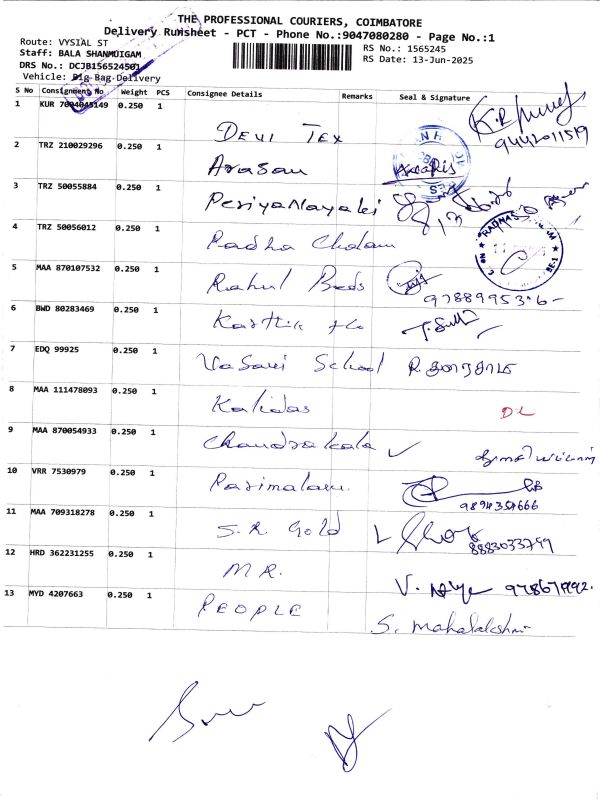 THE PROFESSIONAL COURIERS, COIMBATORE
Delivery Runsheet - PCT - Phone No.:9047080280 - Page No.:1
Route: VYSIAL ST
Staff: BALA SHANMUIGAM
DRS No.: DCJB156524501
Vehicle: Big Bag Delivery
RS No.: 1565245
RS Date: 13-Jun-2025
S No Consignment No Weight PCS Consignee Details Remarks Seal & Signature
1 KUR 7094045149 0.250 1 Devi Tex
9442011519
2 TRZ 210029296 0.250 1 Arasan
3 TRZ 50055884 0.250 1 PeriyaNayaki
4 TRZ 50056012 0.250 1 Radha Cholam
5 MAA 870107532 0.250 1 Rahul Beds
6 BWD 80283469 0.250 1 Karthik
7 EDQ 99925 0.250 1 Vasavi School
8 MAA 111478093 0.250 1 Kalidas DL
9 MAA 870054933 0.250 1 Chandrakala ✓
10 VRR 7530979 0.250 1 Parimalam
9894354666
11 MAA 709318278 0.250 1 S.R. Gold
8883033799
12 HRD 362231255 0.250 1 M.R.
13 MYD 4207663 0.250 1 PEOPLE S. Mahalakshmi